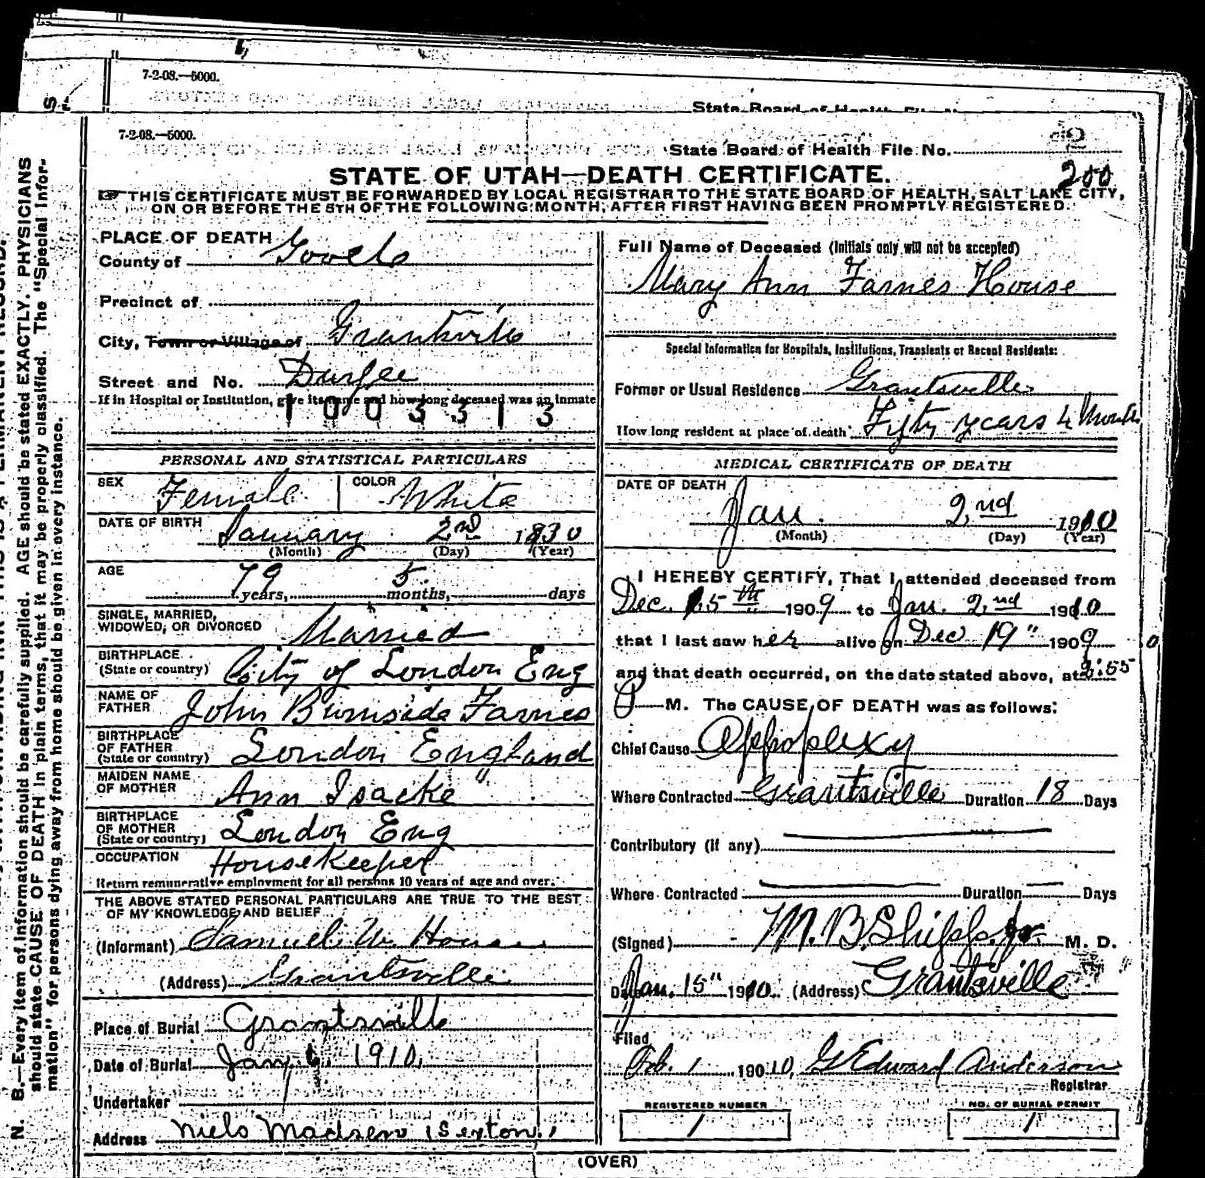 7-2-08.—5000.
State Board of Health File No.
7-2-08.—5000.
State Board of Health File No.
200
STATE OF UTAH—DEATH CERTIFICATE.
☞ THIS CERTIFICATE MUST BE FORWARDED BY LOCAL REGISTRAR TO THE STATE BOARD OF HEALTH, SALT LAKE CITY,
ON OR BEFORE THE 5TH OF THE FOLLOWING MONTH, AFTER FIRST HAVING BEEN PROMPTLY REGISTERED.
N. B.—Every item of information should be carefully supplied. AGE should be stated EXACTLY. PHYSICIANS
should state CAUSE OF DEATH in plain terms, that it may be properly classified. The "Special Infor-
mation" for persons dying away from home should be given in every instance.
PLACE OF DEATH
County of
Precinct of
City, Town or Village of Grantsville
Street and No. Durfee
If in Hospital or Institution, give its name and how long deceased was an inmate
1003313
PERSONAL AND STATISTICAL PARTICULARS
SEX Female COLOR White
DATE OF BIRTH January 2nd 1830
(Month) (Day) (Year)
AGE 79 years, 5 months, days
SINGLE, MARRIED,
WIDOWED, OR DIVORCED Married
BIRTHPLACE
(State or country) City of London Eng
NAME OF
FATHER John Burnside Farnes
BIRTHPLACE
OF FATHER
(State or country) London England
MAIDEN NAME
OF MOTHER Ann Isacke
BIRTHPLACE
OF MOTHER
(State or country) London Eng
OCCUPATION Housekeeper
Return remunerative employment for all persons 10 years of age and over.
THE ABOVE STATED PERSONAL PARTICULARS ARE TRUE TO THE BEST
OF MY KNOWLEDGE AND BELIEF
(Informant) Samuel W. House
(Address) Grantsville
Place of Burial Grantsville
Date of Burial Jany 6 1910
Undertaker
Address Niels Madsen (Sexton)
Full Name of Deceased (Initials only will not be accepted)
Mary Ann Farnes House
Special Information for Hospitals, Institutions, Transients or Recent Residents:
Former or Usual Residence Grantsville
How long resident at place of death Fifty years 4 Months
MEDICAL CERTIFICATE OF DEATH
DATE OF DEATH
Jan. 2nd 1910
(Month) (Day) (Year)
I HEREBY CERTIFY, That I attended deceased from
Dec. 15th 1909 to Jan. 2nd 1910
that I last saw her alive on Dec 19" 1909
and that death occurred, on the date stated above, at 2:55
P M. The CAUSE OF DEATH was as follows:
Chief Cause Appoplexy
Where Contracted Grantsville Duration 18 Days
Contributory (if any)
Where Contracted Duration Days
(Signed) M. B. Shipp, Jr. M. D.
Date Jan. 15" 1910. (Address) Grantsville
Filed
Feb. 1 1910, G Edward Anderson
Registrar
REGISTERED NUMBER
1
NO. OF BURIAL PERMIT
1
(OVER)